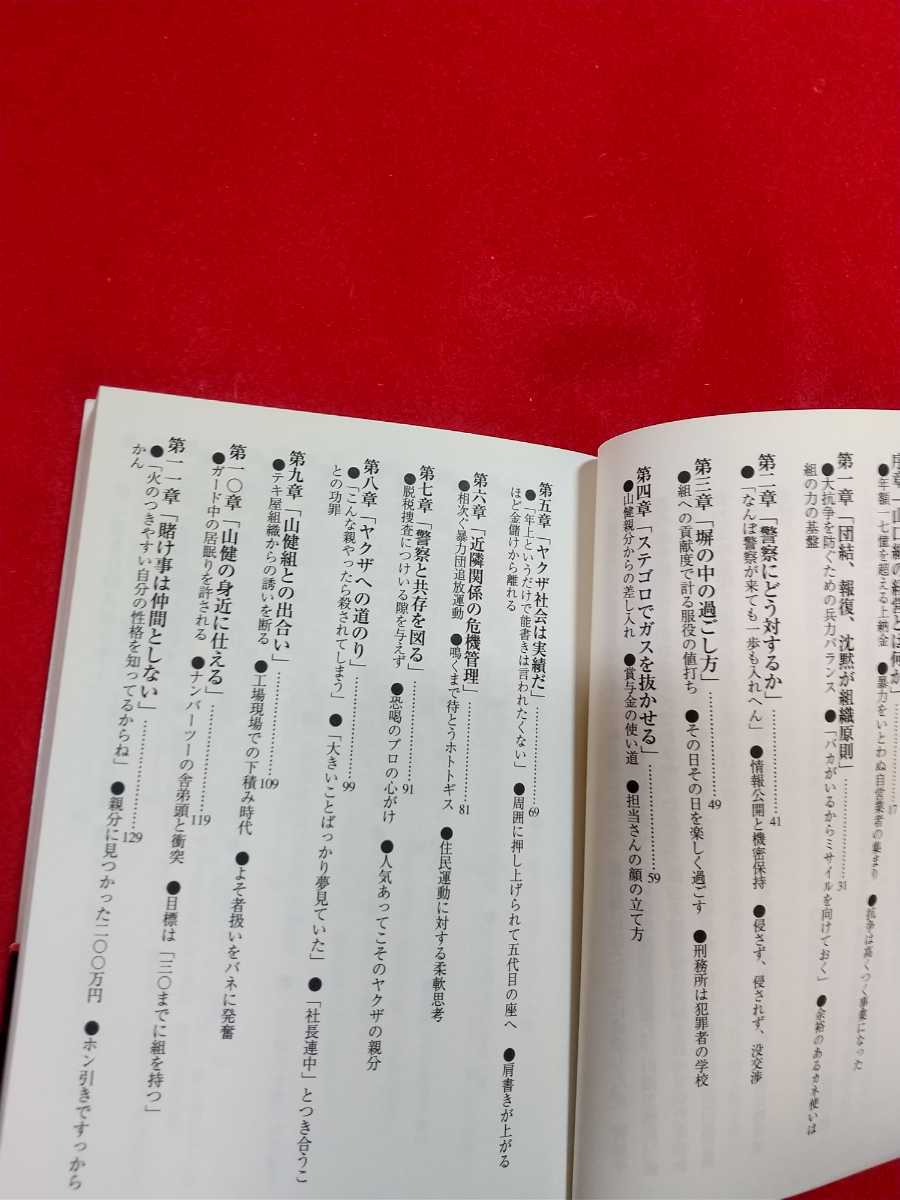 序章「山口組の経営とは何か」……………17
●年額一七億を超える上納金 ●暴力をいとわぬ自営業者の集まり ●抗争は高くつく事業になった
第一章「団結、報復、沈黙が組織原則」……………31
●大抗争を防ぐための兵力バランス ●「バカがいるからミサイルを向けておく」 ●余裕のあるカネ使いは
組の力の基盤
第二章「警察にどう対するか」……………41
●「なんぼ警察が来ても一歩も入れへん」 ●情報公開と機密保持 ●侵さず、侵されず、没交渉
第三章「塀の中の過ごし方」……………49
●組への貢献度で計る服役の値打ち ●その日その日を楽しく過ごす ●刑務所は犯罪者の学校
第四章「ステゴロでガスを抜かせる」……………59
●山健親分からの差し入れ ●賞与金の使い道 ●担当さんの顔の立て方
第五章「ヤクザ社会は実績だ」……………69
●「年上というだけで能書きは言われたくない」 ●周囲に押し上げられて五代目の座へ ●肩書きが上がる
ほど金儲けから離れる
第六章「近隣関係の危機管理」……………81
●相次ぐ暴力団追放運動 ●鳴くまで待とうホトトギス ●住民運動に対する柔軟思考
第七章「警察と共存を図る」……………91
●脱税捜査につけいる隙を与えず ●恐喝のプロの心がけ ●人気あってこそのヤクザの親分
第八章「ヤクザへの道のり」……………99
●「こんな親やったら殺されてしまう」 ●「大きいことばっかり夢見ていた」 ●「社長連中」とつき合うこ
との功罪
第九章「山健組との出合い」……………109
●テキ屋組織からの誘いを断る ●工場現場での下積み時代 ●よそ者扱いをバネに発奮
第一〇章「山健の身近に仕える」……………119
●ガード中の居眠りを許される ●ナンバーツーの舎弟頭と衝突 ●目標は「三〇までに組を持つ」
第一一章「賭け事は仲間としない」……………129
●「火のつきやすい自分の性格を知ってるからね」 ●親分に見つかった二〇〇万円 ●ホン引きですっから
かん